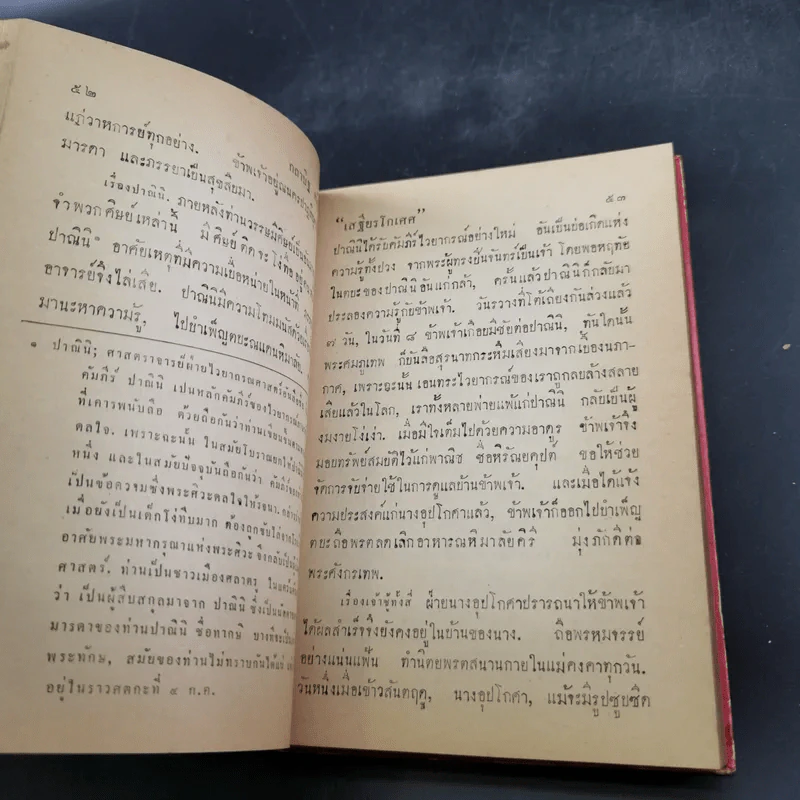 ๕๒
แก่วาหการย์ทุกอย่าง. ข้าพเจ้าอยู่ณนคร
มารดา และภรรยาเป็นสุขสืบมา.
เรื่องปาณินิ. ภายหลังท่านวรรษมีศิษย์เป็น
จำพวกศิษย์เหล่านี้ มีศิษย์ติดจะโง่ชื่อ
ปาณินิ๑ อาศัยเหตุที่มีความเบื่อหน่ายในหน้าที่
อาจารย์จึงไล่เสีย. ปาณินิมีความโทมนัส
มานะหาความรู้, ไปบำเพ็ญตบะณแดนหิมาลัย.
๑ ปาณินิ; ศาสตราจารย์ฝ่ายไวยากรณศาสตร์
คัมภีร์ ปาณินิ เป็นหลักคัมภีร์ของไวยากรณ์
ที่เคารพนับถือ ด้วยถือกันว่าท่านเขียน
ดลใจ. เพราะฉะนั้น ในสมัยโบราณยกให้
หนึ่ง และในสมัยปัจจุบันถือกันว่า คัมภีร์
เป็นข้อความซึ่งพระศิวะดลใจให้รจนา.
เมื่อยังเป็นเด็กโง่ทึบมาก ต้องถูกขับไล่
อาศัยพระมหากรุณาแห่งพระศิวะ จึงกลับเป็น
ศาสตร์. ท่านเป็นชาวเมืองศลาตรุ
ว่า เป็นผู้สืบสกุลมาจาก ปาณิน ซึ่งเป็น
มารดาของท่านปาณินิ ชื่อทากษิ บางทีจะเป็น
พระทักษ, สมัยของท่านไม่ทราบกันได้แน่
อยู่ในราวศตกะที่ ๔ ก.ค.
๕๓
“เสฐียรโกเศศ”
ปาณินิได้รับคัมภีร์ไวยากรณ์อย่างใหม่ อันเป็นบ่อเกิดแห่ง
ความรู้ทั้งปวง จากพระผู้ทรงปิ่นจันทร์เป็นเจ้า โดยพอหฤทัย
ในตบะของปาณินิอันแก่กล้า, ครั้นแล้วปาณินิก็กลับมา
ประลองความรู้กับข้าพเจ้า. วันรวางที่โต้เถียงกันล่วงแล้ว
๗ วัน, ในวันที่ ๘ ข้าพเจ้าเกือบมีชัยต่อปาณินิ, ทันใดนั้น
พระศมภูเทพ ก็บันลือสุรนาทกระหึ่มเสียงมาจากเบื้องนภา-
กาศ, เพราะฉะนั้น เอนทระไวยากรณ์ของเราถูกลบล้างสลาย
เสียแล้วในโลก, เราทั้งหลายพ่ายแพ้แก่ปาณินิ กลับเป็นผู้
งมงายโง่เง่า. เมื่อมีใจเต็มไปด้วยความอาดูร ข้าพเจ้าจึง
มอบทรัพย์สมบัติไว้แก่พาณิช ชื่อหิรัณยคุปต์ ขอให้ช่วย
จัดการจับจ่ายใช้ในการดูแลบ้านข้าพเจ้า. และเมื่อได้แจ้ง
ความประสงค์แก่นางอุปโกศาแล้ว, ข้าพเจ้าก็ออกไปบำเพ็ญ
ตบะถือพรตลดเลิกอาหารณหิมาลัยคิรี มุ่งภักดีต่อ
พระศังกรเทพ.
เรื่องเจ้าชู้ทั้งสี่ ฝ่ายนางอุปโกศาปรารถนาให้ข้าพเจ้า
ได้ผลสำเร็จจึงยังคงอยู่ในบ้านของนาง. ถือพรหมจรรย์
อย่างแน่นแฟ้น ทำนิตยพรตสนานกายในแม่คงคาทุกวัน.
วันหนึ่งเมื่อเข้าวสันตฤดู, นางอุปโกศา, แม้จะมีรูปซูบซีด